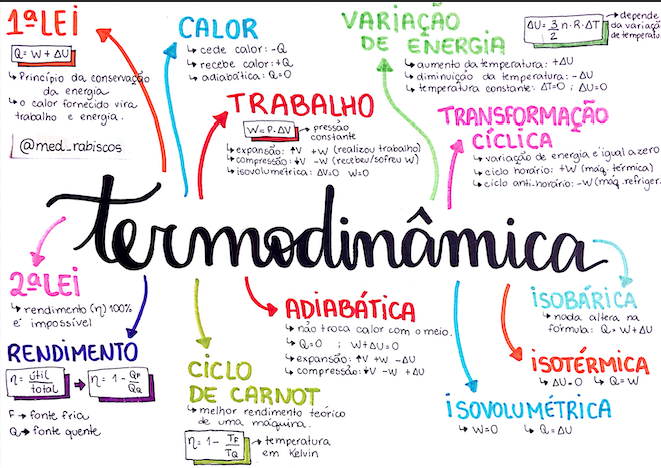 1ª LEI
Q = W + ΔU
↳ Princípio da conservação
da energia
↳ o calor fornecido vira
trabalho e energia.
@med_rabiscos
CALOR
↳ cede calor: -Q
↳ recebe calor: +Q
↳ adiabática: Q=0
TRABALHO
W = P. ΔV → pressão
constante
↳ expansão: ↑V +W (realizou trabalho)
↳ compressão: ↓V -W (recebeu/sofreu W)
↳ isovolumétrica: ΔV=0 W=0
VARIAÇÃO
DE ENERGIA
↳ aumento da temperatura: +ΔU
↳ diminuição da temperatura: -ΔU
↳ temperatura constante: ΔT=0 ; ΔU=0
ΔU = 3/2 n.R.ΔT → depende
da variação
de temperatu
TRANSFORMAÇÃO
CÍCLICA
↳ variação de energia é igual a zero
↳ ciclo horário: +W (máq. térmica)
↳ ciclo anti-horário: -W (máq. refriger.
termodinâmica
2ª LEI
↳ rendimento (η) 100%
é impossível
RENDIMENTO
η = útil/total → η = 1 - QF/QQ
F → fonte fria
Q → fonte quente
CICLO
DE CARNOT
↳ melhor rendimento teórico
de uma máquina.
η = 1 - TF/TQ → temperatura
em Kelvin
ADIABÁTICA
↳ não troca calor com o meio.
↳ Q=0 ; W+ΔU=0
↳ expansão: ↑V +W -ΔU
↳ compressão: ↓V -W +ΔU
ISOBÁRICA
↳ nada altera na
fórmula: Q=W+ΔU
ISOTÉRMICA
↳ ΔU=0 ↳ Q=W
ISOVOLUMÉTRICA
↳ W=0 ↳ Q=ΔU